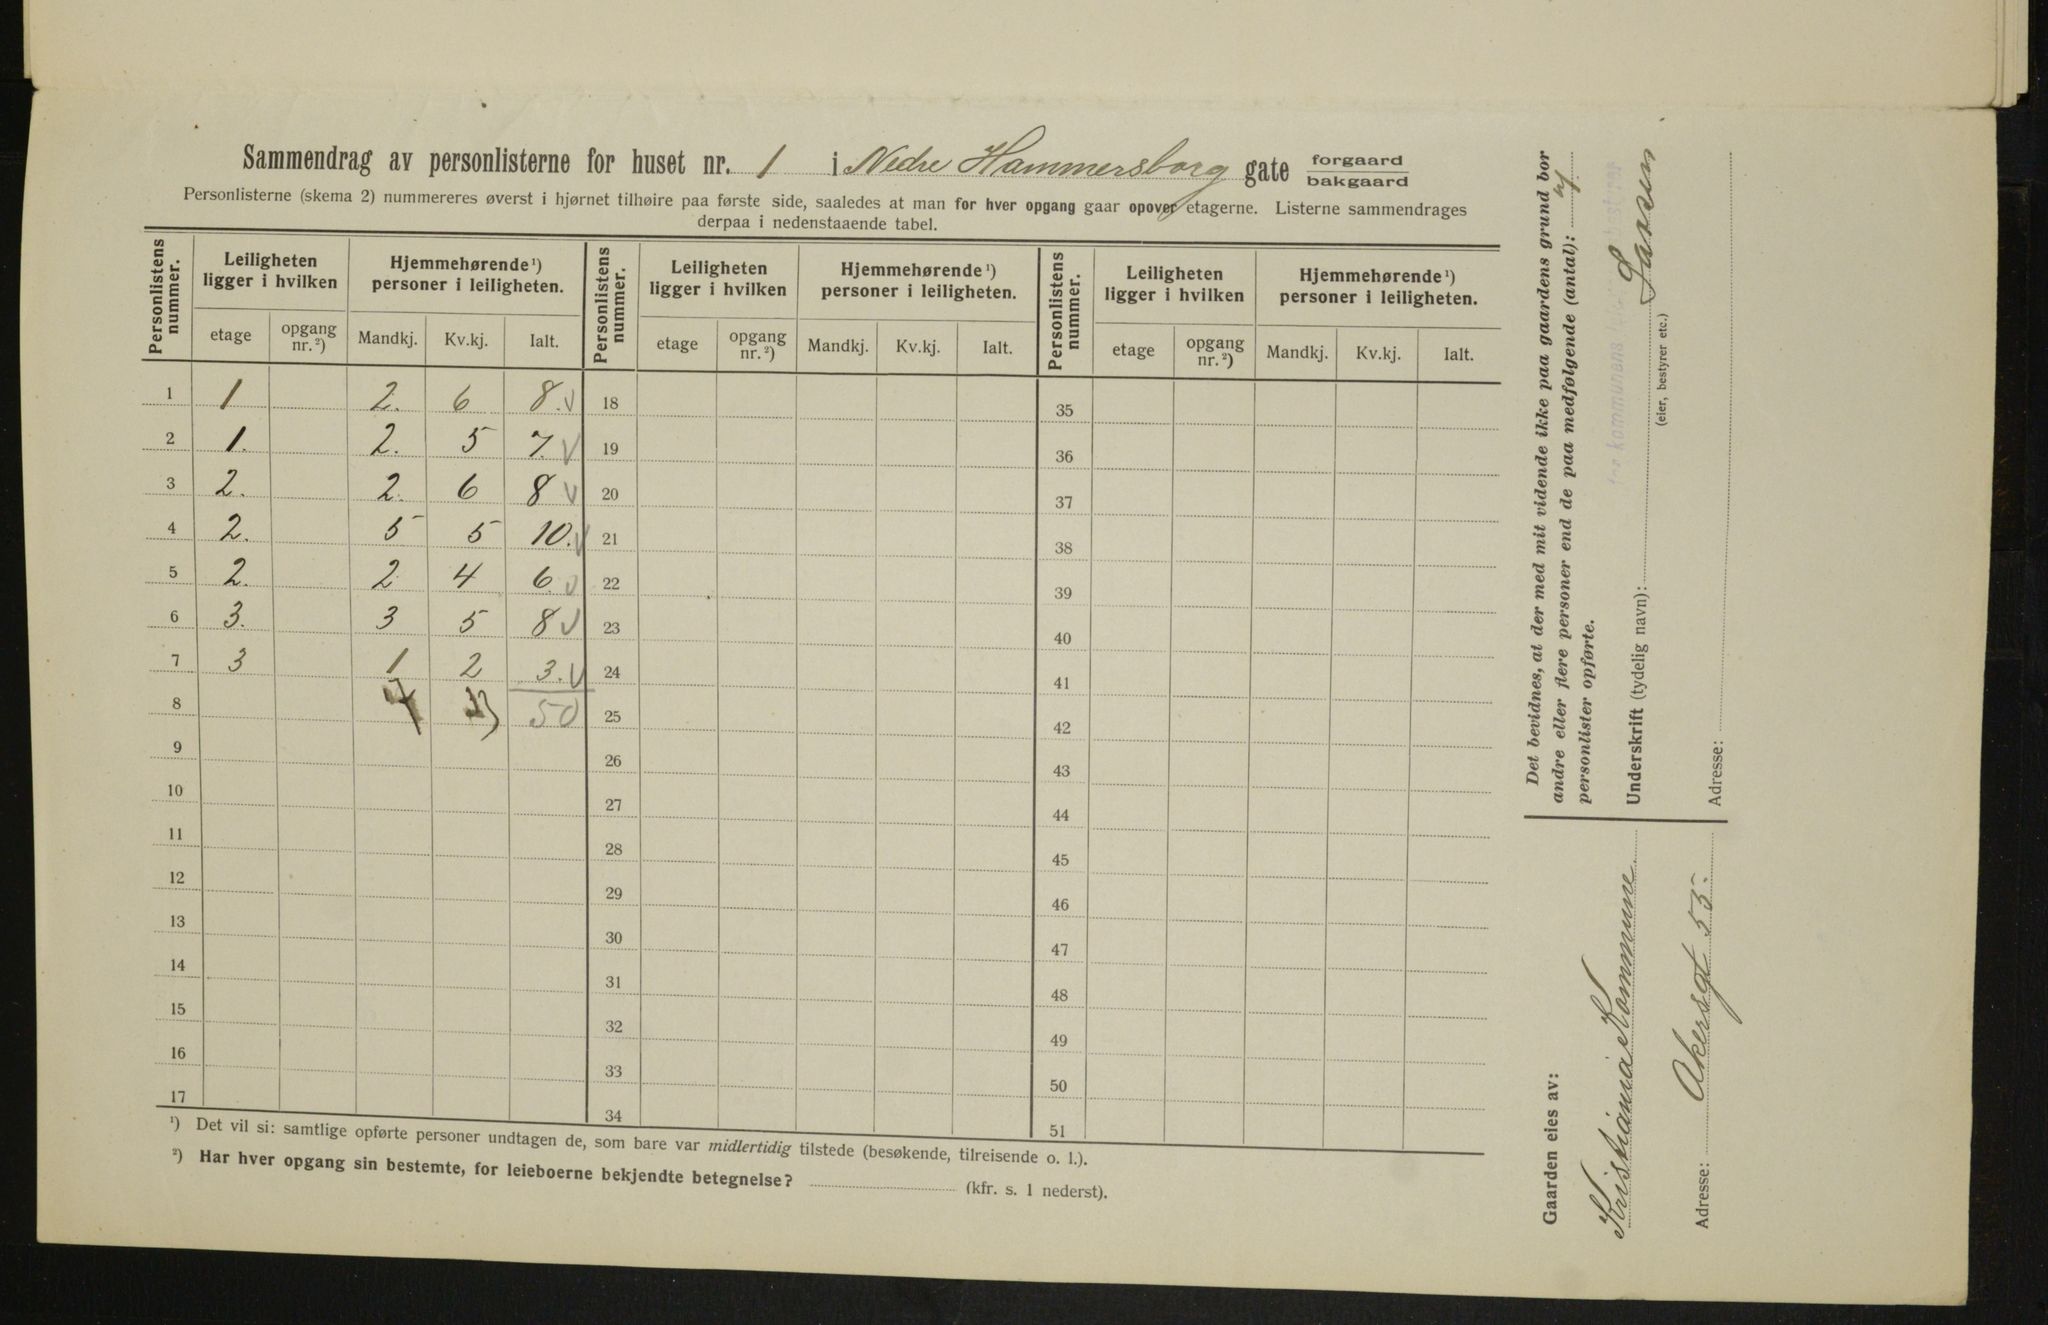 Sammendrag av personlisterne for huset nr. 1 i Nedre Hammersborg gate forgaard bakgaard
Personlisterne (skema 2) nummereres øverst i hjørnet tilhøire paa første side, saaledes at man for hver opgang gaar opover etagerne. Listerne sammendrages
derpaa i nedenstaaende tabel.
Personlistens nummer. Leiligheten ligger i hvilken Hjemmehørende ¹) personer i leiligheten. Personlistens nummer. Leiligheten ligger i hvilken Hjemmehørende ¹) personer i leiligheten. Personlistens nummer. Leiligheten ligger i hvilken Hjemmehørende ¹) personer i leiligheten.
etage opgang nr. ²) Mandkj. Kv.kj. Ialt. etage opgang nr. ²) Mandkj. Kv.kj. Ialt. etage opgang nr. ²) Mandkj. Kv.kj. Ialt.
1 1 2. 6 8. V 18 35
2 1. 2. 5 7. V 19 36
3 2. 2. 6 8 V 20 37
4 2. 5 5 10. V 21 38
5 2. 2 4 6. V 22 39
6 3. 3 5 8 V 23 40
7 3 1 2 3. V 24 41
8 50 25 42
9 26 43
10 27 44
11 28 45
12 29 46
13 30 47
14 31 48
15 32 49
16 33 50
17 34 51
¹) Det vil si: samtlige opførte personer undtagen de, som bare var midlertidig tilstede (besøkende, tilreisende o. l.).
²) Har hver opgang sin bestemte, for leieboerne bekjendte betegnelse? (kfr. s. 1 nederst).
Det bevidnes, at der med mit vidende ikke paa gaardens grund bor
andre eller flere personer end de paa medfølgende (antal): 7
personlister opførte.
Underskrift (tydelig navn):
(eier, bestyrer etc.)
Adresse:
Gaarden eies av:
Kristiania Kommune
Adresse: Akersgt 55.